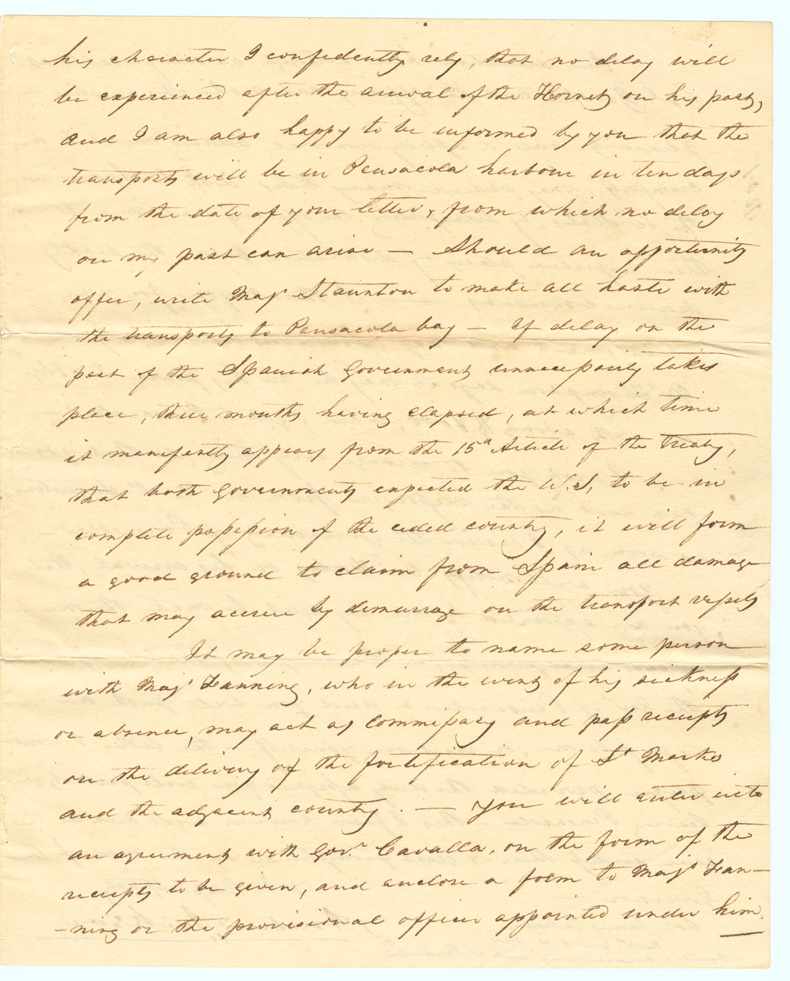 his character I confidently rely, that no delay will
be experienced after the arrival of the Hornet on his part,
and I am also happy to be informed by you that the
transports will be in Pensacola harbour in ten days
from the date of your letter, from which no delay
on my part can arise — Should an opportunity
offer, write Majr Staunton to make all haste with
the transports to Pensacola bay — If delay on the
part of the Spanish Government unnecessarily takes
place, three months having elapsed, at which time
it manifestly appears from the 15th Article of the treaty,
that both Governments expected the U.S, to be in
complete possession of the ceded country, it will form
a good ground to claim from Spain all damage
that may accrue by demurrage on the transport vessels
It may be proper to name some person
with Majr Fanning, who in the event of his sickness
or absence, may act as Commissary and pass receipts
on the delivery of the fortification of St Marks
and the adjacent country. — You will enter into
an agreement with Govr. Cavalla, on the form of the
receipts to be given, and enclose a form to Majr Fan—
—ning or the provisional officer appointed under him.